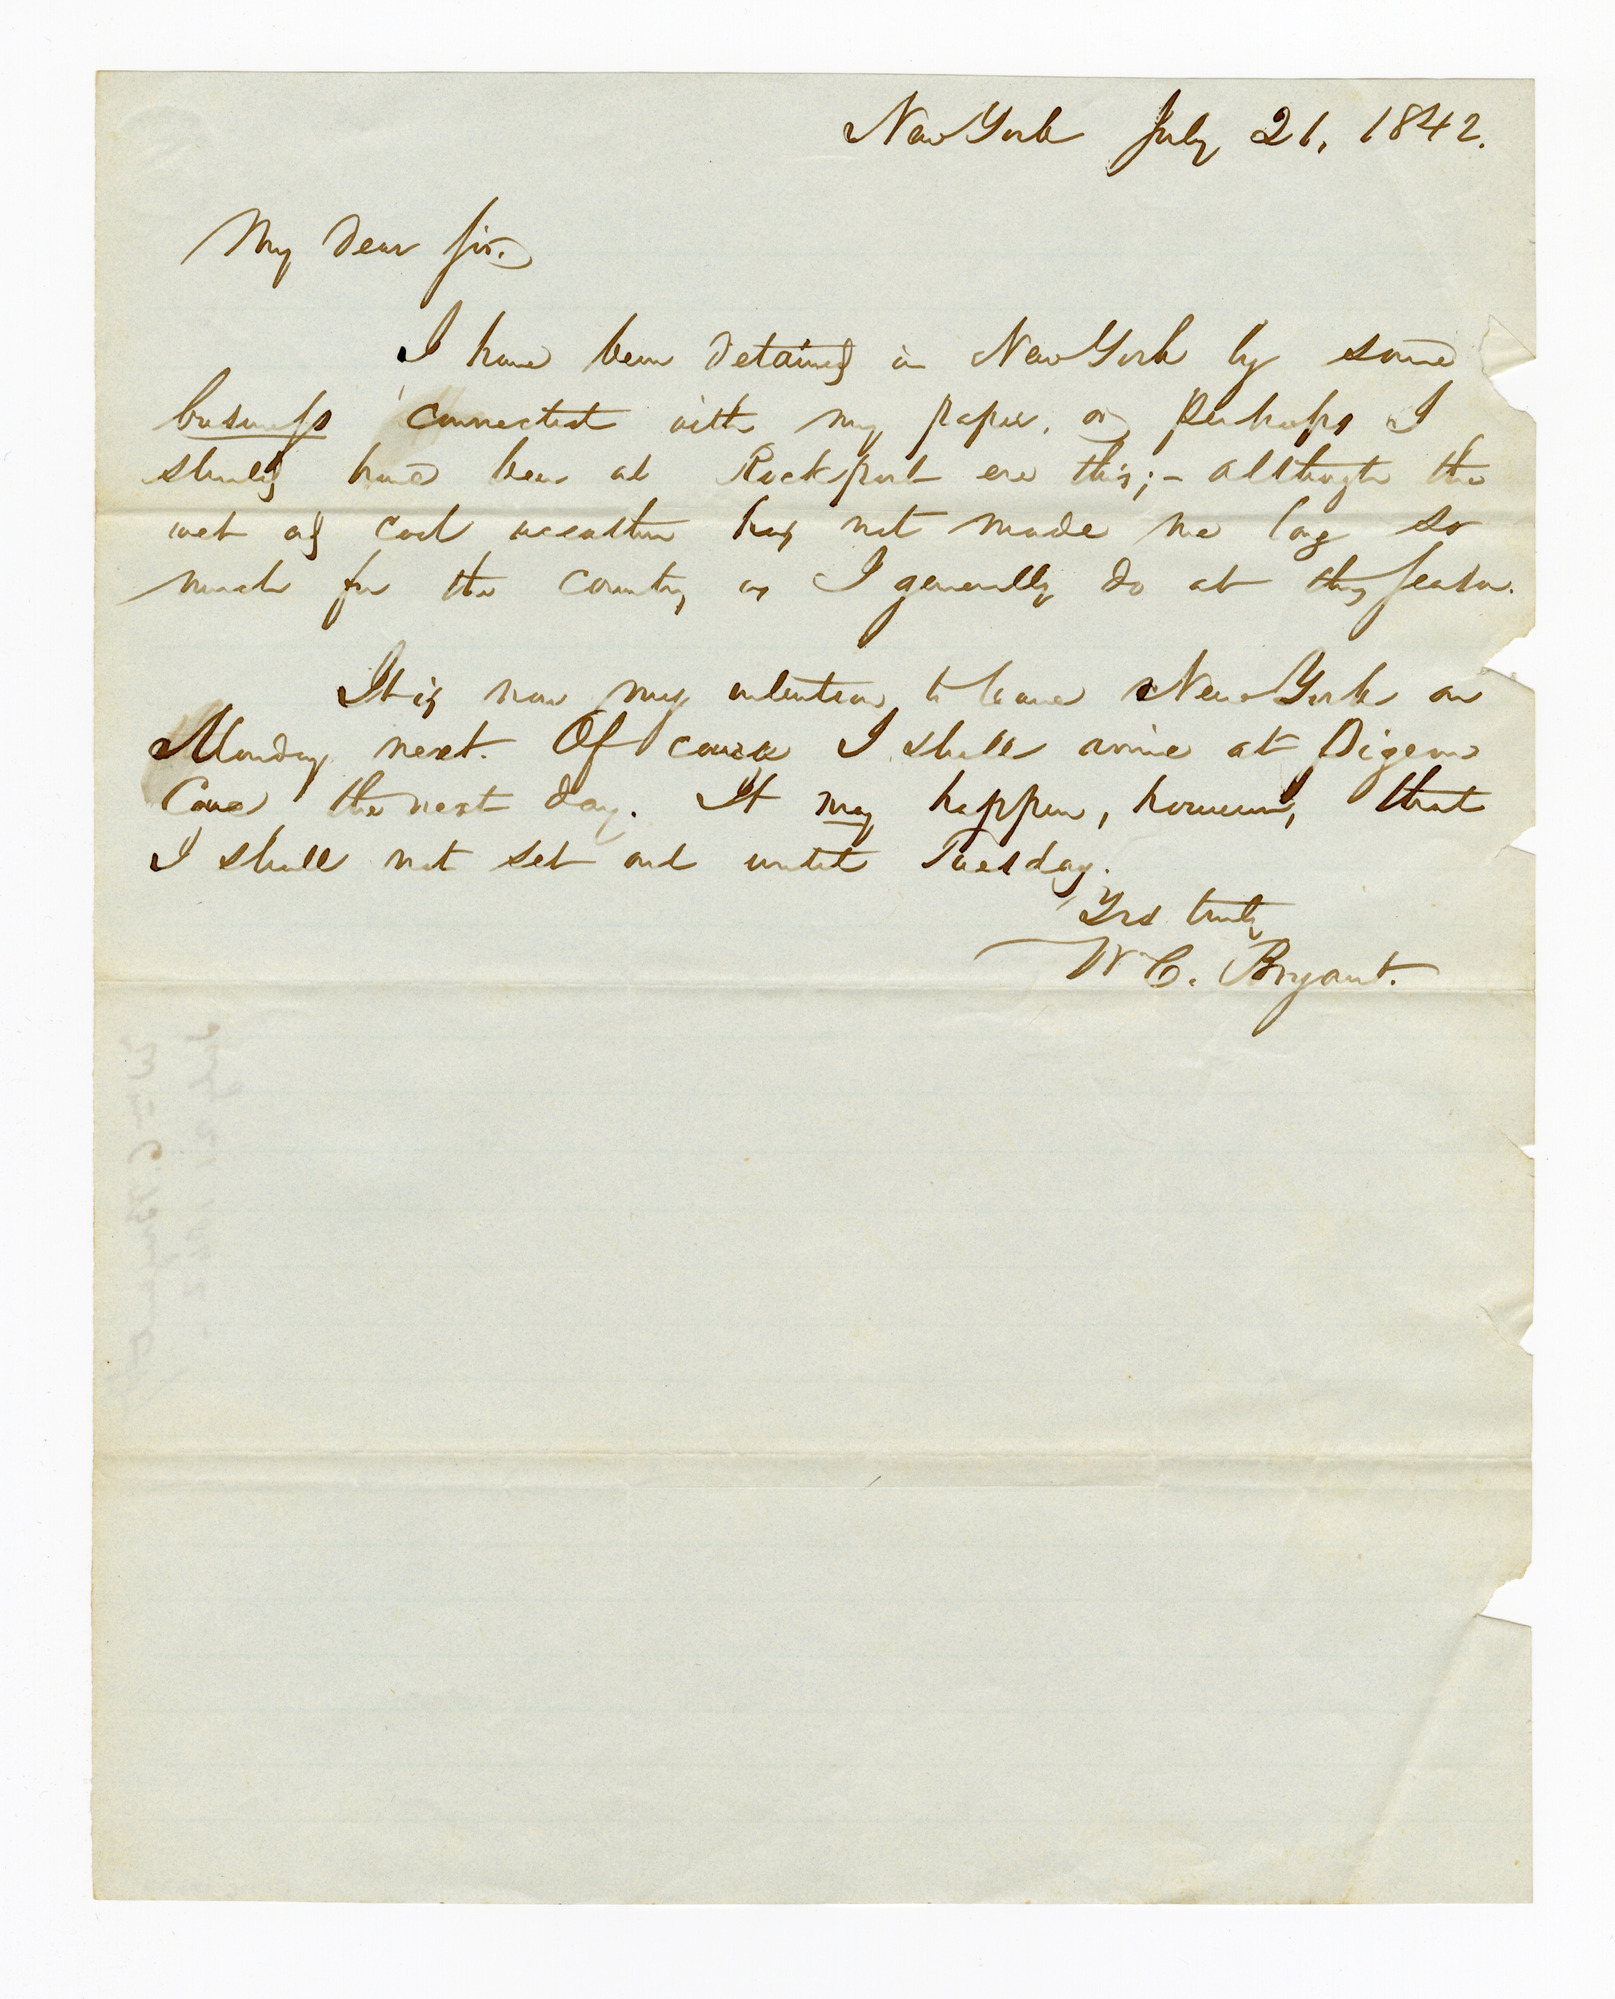 New York July 21, 1842.
My Dear Sir.
I have been detained in New York by some
business connected with my paper, or perhaps I
should have been at Rockport ere this;- although the
wet and cool weather has not made me long so
much for the country as I generally do at this season.
It is now my intention to leave New York on
Monday next. Of course I shall arrive at Pigeon
Cove the next day. It may happen, however, that
I shall not set out until Tuesday.
Yrs truly
W C. Bryant.
Wm C Bryant
July 21 1842 -